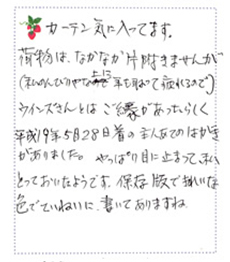 カーテン気に入ってます。
荷物は、なかなか片附きませんが
(私ものんびりやな上に年も取って疲れるので)
ウインズさんとはご縁があったらしく
平成19年5月28日着の主人あてのはがき
がありました。やっぱり目に止まって、私
とっておいたようです。保存版で揃いな
色でていねいに、書いてありますね